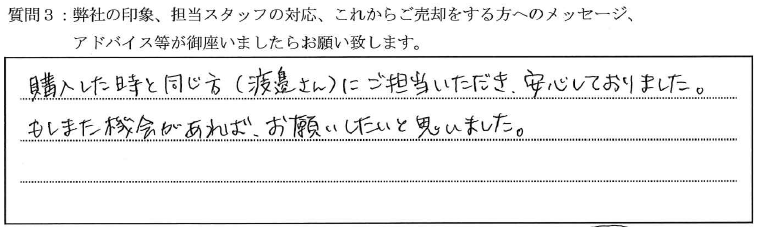 質問３：弊社の印象、担当スタッフの対応、これからご売却をする方へのメッセージ、
アドバイス等が御座いましたらお願い致します。
購入した時と同じ方（渡邉さん）にご担当いただき、安心しておりました。
もしまた機会があれば、お願いしたいと思いました。